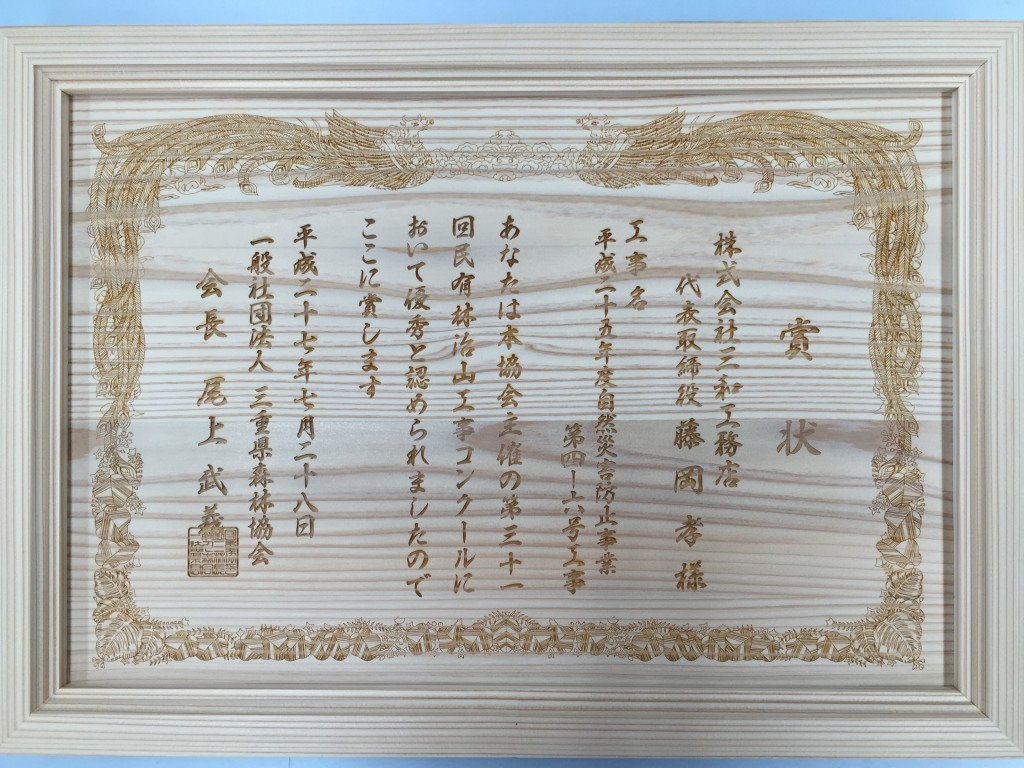 賞状
株式会社三和工務店
代表取締役 藤岡 孝 様
工事名
平成二十五年度自然災害防止事業
第四－六号工事
あなたは本協会主催の第三十一
回民有林治山工事コンクールに
おいて優秀と認められましたので
ここに賞します
平成二十七年七月二十八日
一般社団法人 三重県森林協会
会長 尾上武義